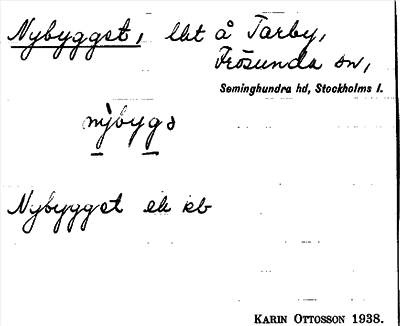 Nybygget, lht å Tarby,
Frösunda sn,
Seminghundra hd, Stockholms l.
Nybygget ek kb
KARIN OTTOSSON 1938.